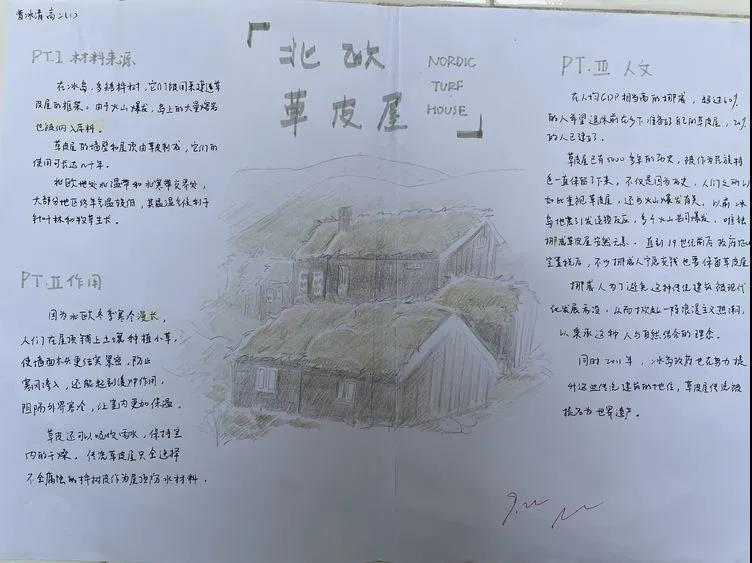 曾冰清 高二(1)
「北欧
草皮屋」
NORDIC
TURF
HOUSE
PT.I 材料来源
在冰岛，多桦树，它们被用来建造草
皮屋的框架。由于火山爆发，岛上的大量熔岩
也被纳入原料。
草皮屋的墙壁和屋顶由草皮制成，它们的
使用可长达几十年。
北欧地处北温带和北寒带交界处，
大部分地区终年气温较低，其温湿气候利于
针叶林和牧草生长。
PT.II 作用
因为北欧冬季寒冷漫长，
人们在屋顶铺上土壤种植小草，
使墙面木头更结实紧密，防止
寒风渗入，还能起到缓冲作用，
阻隔外界寒冷，让室内更加保温。
草皮还可以吸收雨水，保持室
内的干燥。传统草皮屋只会选择
不会腐蚀的桦树皮作为屋顶防水材料。
PT.III 人文
在人均GDP相当高的挪威，超过60%
的人希望退休前在乡下准备好自己的草皮屋，20%
的人已建好了。
草皮屋已有5000多年的历史，被作为民族特
色一直保留了下来。不仅是因为历史，人们之所以
如此重视草皮屋，还与火山爆发有关。以前冰
岛地震引发连锁反应，多个火山共同爆发，唯独
挪威草皮屋安然无恙。直到19世纪前后政府
不少挪威人宁愿交钱也要保留草皮屋
挪威人为了避免这种传统建筑被现代
化发展 ，从而掀起一阵浪漫主义热潮，
以秉承这种人与自然结合的理念。
同时2011年，冰岛政府也在努力提
升这些传统建筑的地位，草皮屋传统被
提名为世界遗产。